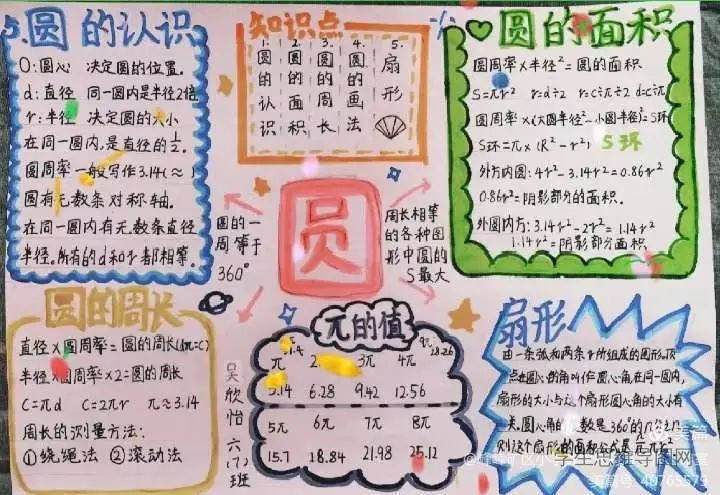 5.圆的认识
O:圆心 决定圆的位置.
d:直径 同一圆内是半径2倍
r:半径 决定圆的大小
在同一圆内,是直径的1/2.
圆周率一般写作3.14(≈)
圆有无数条对称轴.
在同一圆内有无数条直径
半径。所有的d和r都相等.
知识点
1.圆的认识
2.圆的面积
3.圆的周长
4.圆的画法
5.扇形
圆的面积
圆周率×半径²=圆的面积
S=πr² r=d÷2 r=c÷π÷2 d=c÷π
圆周率×(大圆半径²-小圆半径²)=S环
S环=π×(R²-r²) S环
外方内圆:4r²-3.14r²=0.86r²
0.86r²=阴影部分的面积.
外圆内方:3.14r²-2r²=1.14r²
1.14r²=阴影部分面积
圆的一周等于360°
圆
周长相等的各种图形中圆的S最大
圆的周长
直径×圆周率=圆的周长
半径×圆周率×2=圆的周长
C=πd C=2πr π≈3.14
周长的测量方法:
①绕绳法 ②滚动法
吴欣怡 六(7)班
π的值
π 3π 4π
3.14 6.28 9.42 12.56
5π 6π 7π 8π
15.7 18.84 21.98 25.12
9π 28.26
扇形
由一条弧和两条r所组成的图形,顶
点在圆心的角叫作圆心角在同一圆内,
扇形的大小与这个扇形圆心角的大小有
关.圆心角的度数是360°的几分之几
则这个扇形的面积公式是
学生思维导图网